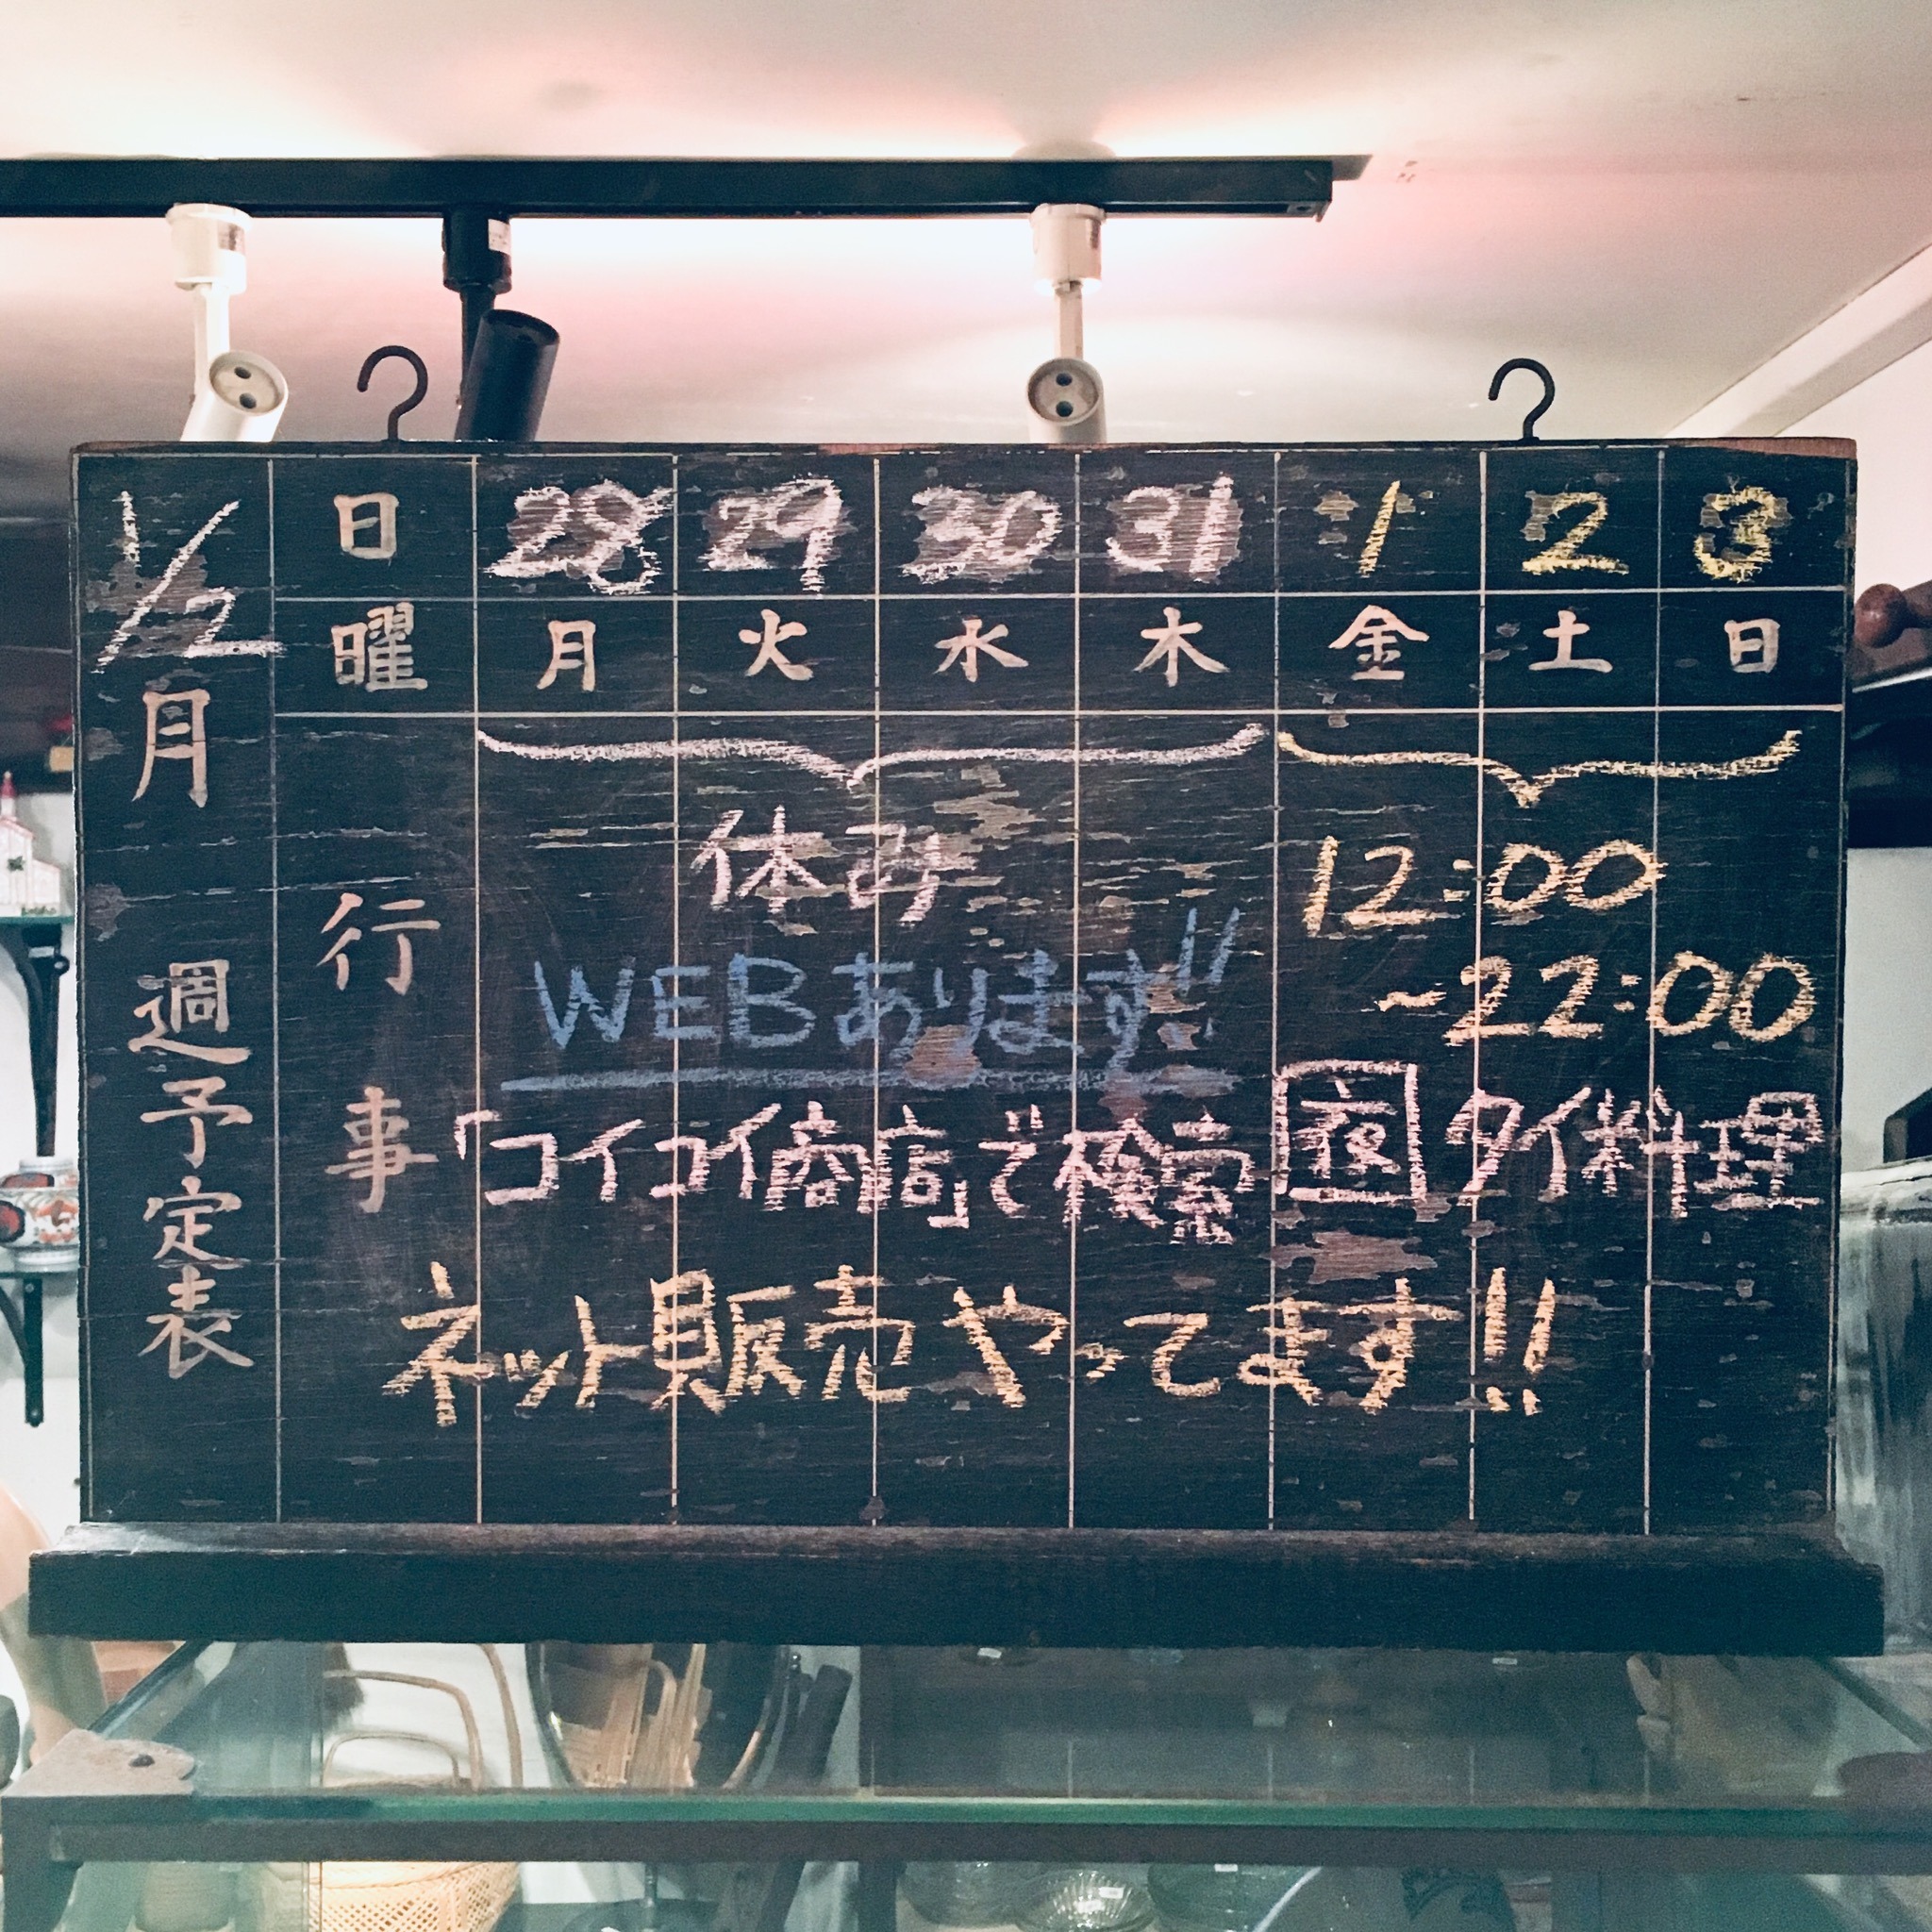 1/2月 週予定表
日 28 29 30 31 1 2 3
曜 月 火 水 木 金 土 日
行事
休み
WEBあります!!
「コイコイ商店」で検索
12:00
~22:00
夜 タイ料理
ネット販売やってます!!